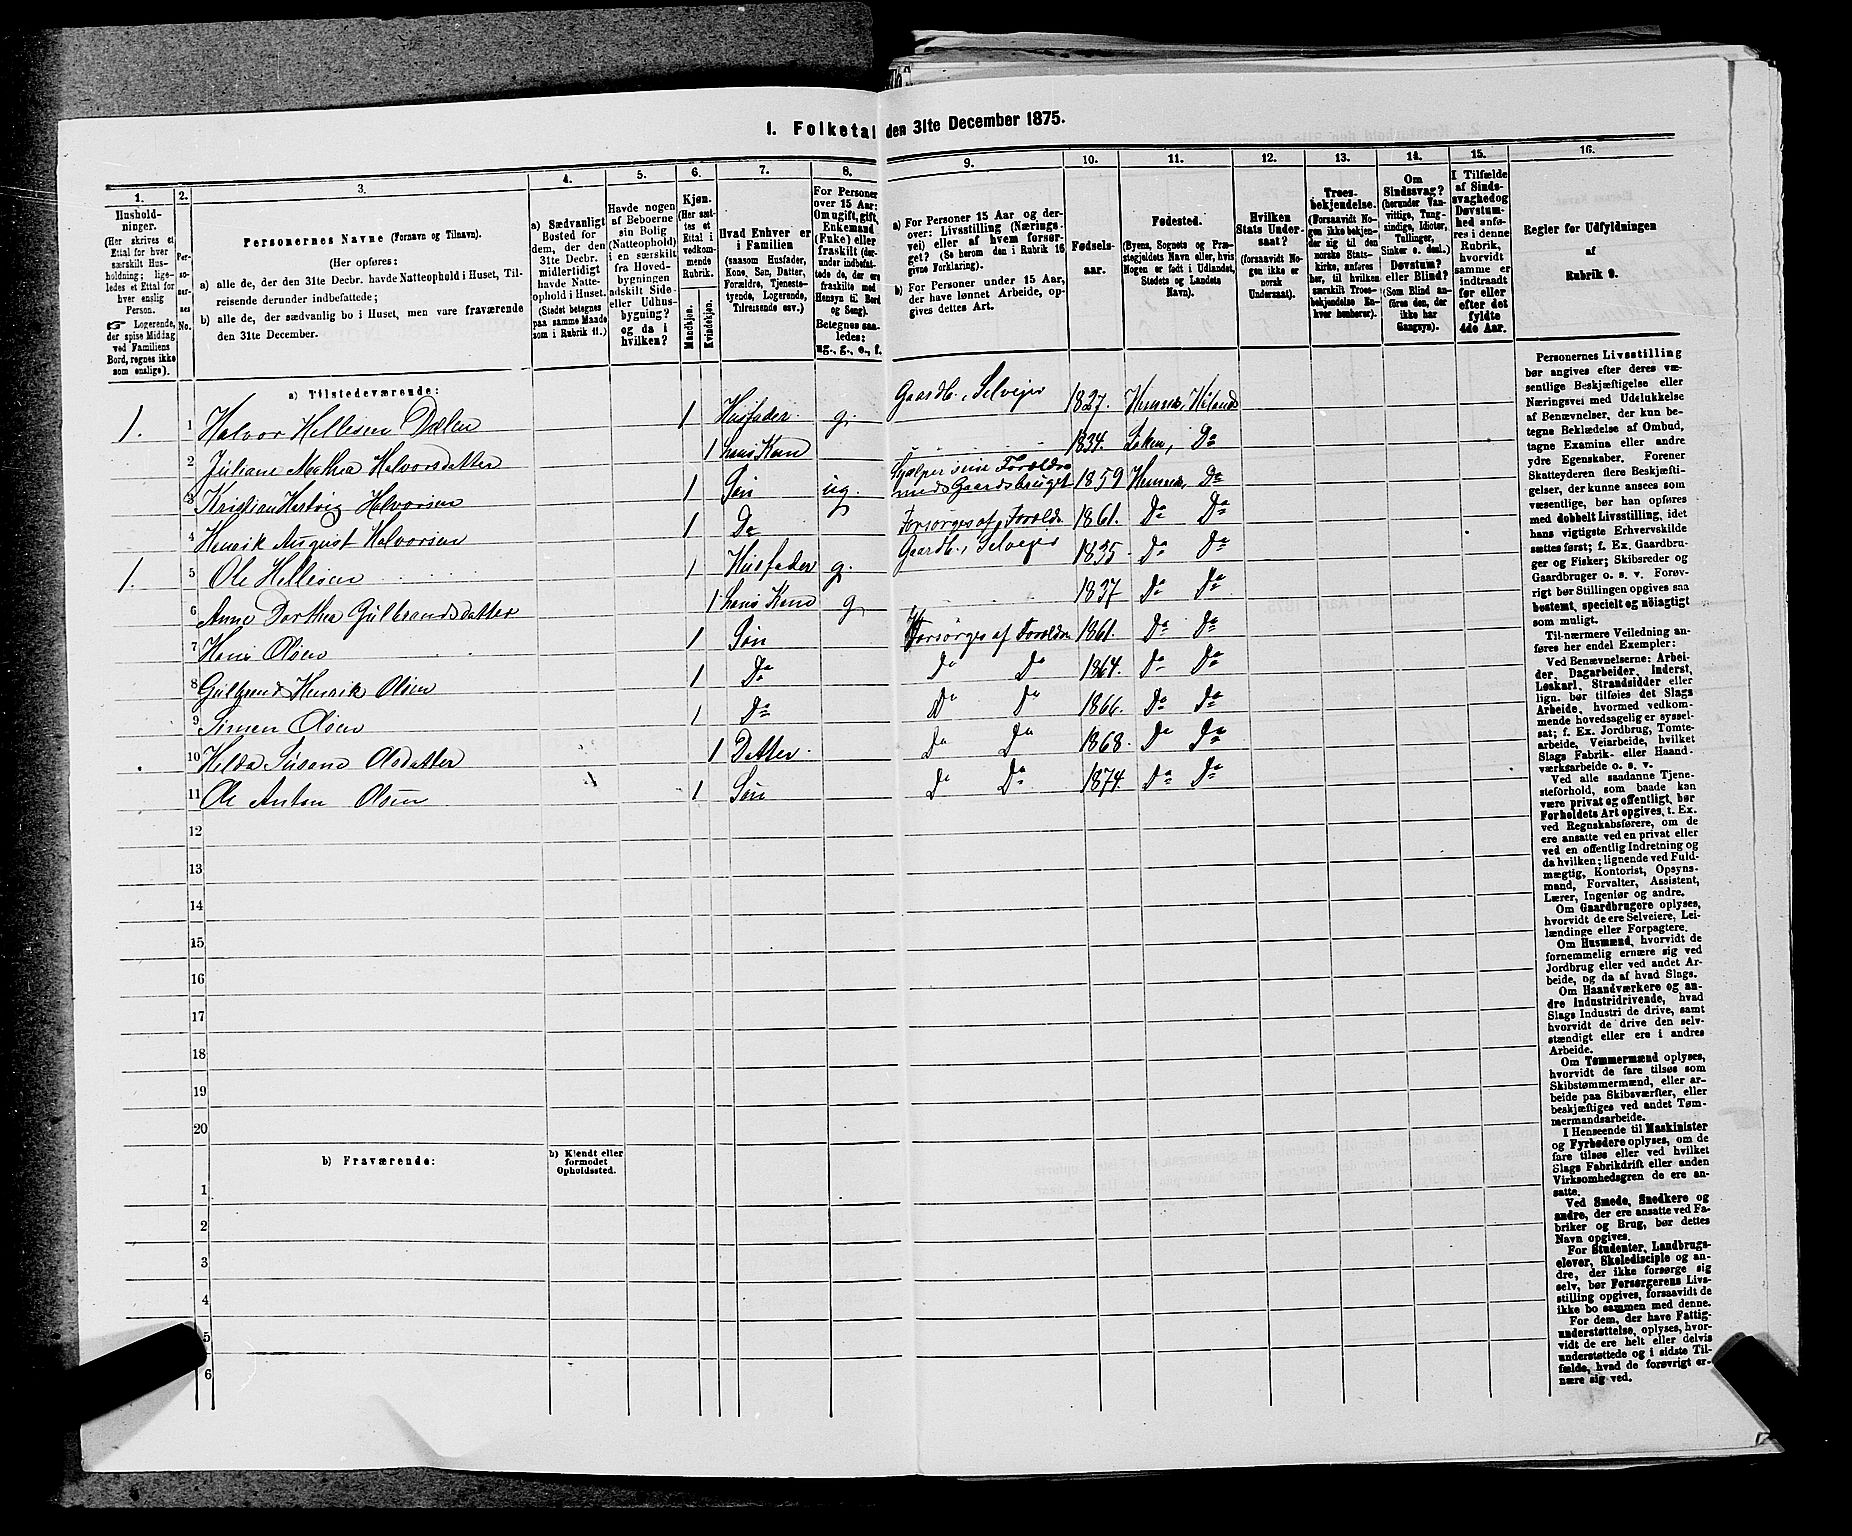 1. Folketal den 31te December 1875.
1. 2. 3. 4. 5. 6. 7. 8. 9. 10. 11. 12. 13. 14. 15. 16.
Hushold-
ninger.
(Her skrives et
Ettal for hver
særskilt Hus-
holdning; lige-
ledes et Ettal for
hver enslig
Person.
☞ Logerende,
der spise Middag
ved Familiens
Bord, regnes ikke
som enslige).
Per-
so-
ner-
nes
No.
Personernes Navne (Fornavn og Tilnavn).
(Her opføres:
a) alle de, der den 31te Decbr. havde Natteophold i Huset, Til-
reisende derunder indbefattede;
b) alle de, der sædvanlig bo i Huset, men vare fraværende
den 31te December.
a) Sædvanligt
Bosted for
dem, der den
31te Decbr.
midlertidigt
havde Natte-
ophold i Huset.
(Stedet betegnes
paa samme Maade
som i Rubrik 11.)
Havde nogen
af Beboerne
sin Bolig
(Natteophold)
i en særskilt
fra Hoved-
bygningen
adskilt Side-
eller Udhus-
bygning?
og da i
hvilken?
Kjøn.
(Her sæt-
tes et
Ettal i
vedkom-
mende
Rubrik.
Mandkjøn.
Kvindekjøn.
Hvad Enhver er
i Familien
(saasom Husfader,
Kone, Søn, Datter,
Forældre, Tjeneste-
tyende, Logerende,
Tilreisende osv.)
For Personer
over 15 Aar:
Om ugift, gift,
Enkemand
(Enke) eller
fraskilt (der-
under indbefat-
tede de, der ere
fraskilte med
Hensyn til Bord
og Seng).
Betegnes saa-
ledes:
ug., g., e., f.
a) For Personer 15 Aar og der-
over: Livsstilling (Nærings-
vei) eller af hvem forsør-
get? (Se herom den i Rubrik 16
givne Forklaring).
b) For Personer under 15 Aar,
der have lønnet Arbeide, op-
gives dettes Art.
Fødsels-
aar.
Fødested.
(Byens, Sognets og Præ-
stegjeldets Navn eller, hvis
Nogen er født i Udlandet,
Stedets og Landets
Navn).
Hvilken
Stats Under-
saat?
(forsaavidt No-
gen ikke er
norsk
Undersaat).
Troes-
bekjendelse.
(Forsaavidt No-
gen ikke bekjen-
der sig til den
norske Stats-
kirke, anføres
her, til hvilken
særskilt Troes-
bekjendelse En-
hver henhører).
Om
Sindssvag?
(herunder Van-
vittige, Tung-
sindige, Idioter,
Tullinger,
Sinker o. desl.)
Døvstum?
eller Blind?
(Som Blind an-
føres den, der
ikke har
Gangsyn).
I Tilfælde
af Sinds-
svaghed og
Døvstum-
hed anfø-
res i denne
Rubrik,
hvorvidt
samme er
indtraadt
før eller
efter det
fyldte
4de Aar.
Regler for Udfyldningen
af
Rubrik 9.
a) Tilstedeværende:
1. 1 Halvor Hellesen Dælen 1 Husfader. g. Gaardb., Selveier 1827. Hemnes, Høland
2 Juliane Mathea Halvorsdatter 1 hans Kone 1834. Løken, Do
3 Kristian Hertvig Halvorsen 1 Søn ug. hjælper sine Forældre
med Gaardsbruget 1859 Hemnes, Do
4 Henrik August Halvorsen 1 Do Forsørges af Foreldr. 1861. Do Do
1. 5 Ole Hellesen 1 Husfader g. Gaardb., Selveier 1835. Do Do
6 Anne Dorthea Gulbrandsdatter 1 hans Kone g. 1837 Do Do
7 Hans Olsen 1 Søn Forsørges af Foreldr 1861. Do Do
8 Gulbrand Henrik Olsen 1 Do Do Do 1864. Do Do
9 Simen Olsen 1 Do Do Do 1866. Do Do
10 Helda Susane Olsdatter 1 Datter. Do Do 1868. Do Do
11 Ole Anton Olsen 1 Søn Do Do 1874. Do Do
12
13
14
15
16
17
18
19
20
b) Fraværende:
b) Kjendt eller
formodet
Opholdssted.
1
2
3
4
5
6
Personernes Livsstilling
bør angives efter deres væ-
sentlige Beskjæftigelse eller
Næringsvei med Udelukkelse
af Benævnelser, der kun be-
tegne Beklædelse af Ombud,
tagne Examina eller andre
ydre Egenskaber. Forener
Skatteyderen flere Beskjæfti-
gelser, der kunne ansees som
væsentlige, bør han opføres
med dobbelt Livsstilling, idet
hans vigtigste Erhvervskilde
sættes først; f. Ex. Gaardbru-
ger og Fisker; Skibsreder og
Gaardbruger o. s. v. Forøv-
rigt bør Stillingen opgives saa
bestemt, specielt og nøiagtigt
som muligt.
Til nærmere Veiledning an-
føres her endel Exempler:
Ved Benævnelserne: Arbei-
der, Dagarbeider, Inderst,
Løskarl, Strandsidder eller
lign. bør tilføies det Slags
Arbeide, hvormed vedkom-
mende hovedsagelig er syssel-
sat; f. Ex. Jordbrug, Tomte-
arbeide, Veiarbeide, hvilket
Slags Fabrik- eller Haand-
værksarbeide o. s. v.
Ved alle saadanne Tjene-
steforhold, som baade kan
være privat og offentligt, bør
Forholdets Art opgives, t. Ex.
ved Regnskabsførere, om de
ere ansatte ved en privat eller
ved en offentlig Indretning og
da hvilken; lignende ved Fuld-
mægtig, Kontorist, Opsyns-
mand, Forvalter, Assistent,
Lærer, Ingeniør og andre.
Om Gaardbrugere oplyses,
hvorvidt de ere Selveiere, Lei-
lændinge eller Forpagtere.
Om Husmænd, hvorvidt de
fornemmelig ernære sig ved
Jordbrug eller ved andet Ar-
beide, og da af hvad Slags.
Om Haandværkere og an-
dre Industridrivende, hvad
Slags Industri de drive, samt
hvorvidt de drive den selv-
stændigt eller ere i andres
Arbeide.
Om Tømmermænd oplyses,
hvorvidt de fare tilsøs som
Skibstømmermænd, eller ar-
beide paa Skibsværfter, eller
beskjæftiges ved andet Tøm-
mermandsarbeide.
I Henseende til Maskinister
og Fyrbødere oplyses, om de
fare tilsøs eller ved hvilket
Slags Fabrikdrift eller anden
Virksomhedsgren de ere an-
satte.
Ved Smede, Snedkere og
andre, der ere ansatte ved Fa-
briker og Brug, bør dettes
Navn opgives.
For Studenter, Landbrugs-
elever, Skoledisciple og an-
dre, der ikke forsørge sig
selv, bør Forsørgerens Livs-
stilling opgives, forsaavidt de
ikke bo sammen med denne.
For dem, der have Fattig-
understøttelse, oplyses, hvor-
vidt de ere helt eller delvis
understøttede og i sidste Til-
fælde, hvad de forøvrigt er-
nære sig ved.